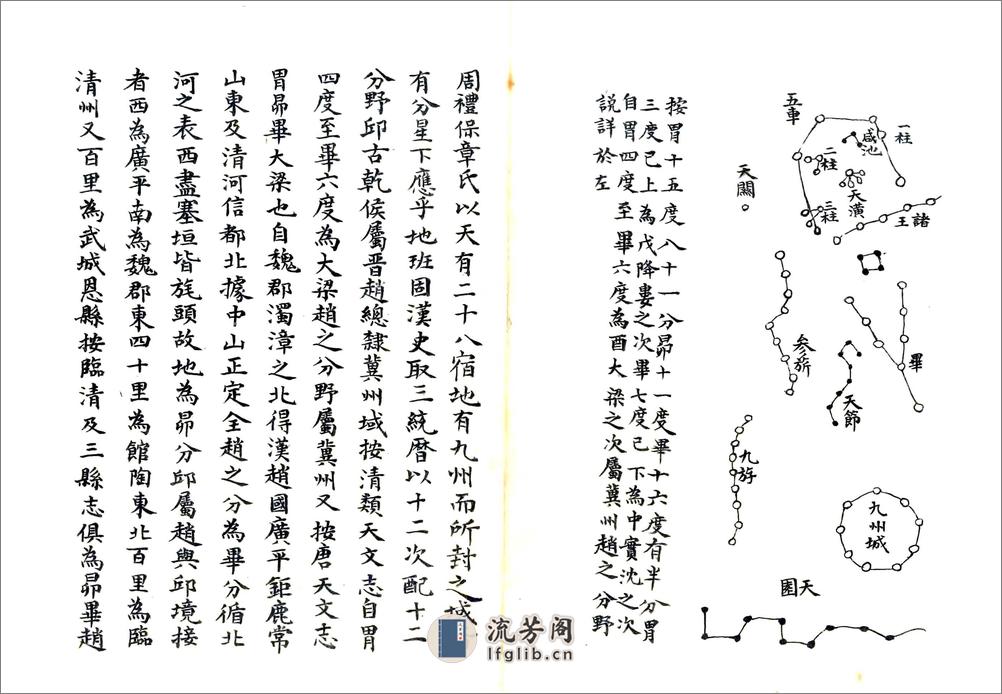 五車
一柱
咸池
二柱
天潢
三柱
諸王
天關
畢
參旂
天節
九斿
九州城
天囷
按胃十五度八十一分昴十一度畢十六度有半分胃
三度已上為戊降婁之次畢七度已下為中實沈之次
自胃四度至畢六度為酉大梁之次屬冀州趙之分野
說詳於左
周禮保章氏以天有二十八宿地有九州而所封之域
有分星下應乎地班固漢史取三統曆以十二次配十二
分野邱古乾侯屬晉趙總隸冀州域按清類天文志自胃
四度至畢六度為大梁趙之分野屬冀州又按唐天文志
胃昴畢大梁也自魏郡濁漳之北得漢趙國廣平鉅鹿常
山東及清河信都北據中山正定全趙之分為畢分循北
河之表西盡塞垣皆旄頭故地為昴分邱屬趙與邱境接
者西為廣平南為魏郡東四十里為館陶東北百里為臨
清州又百里為武城恩縣按臨清及三縣志俱為昴畢趙
流芳阁
lfglib.cn